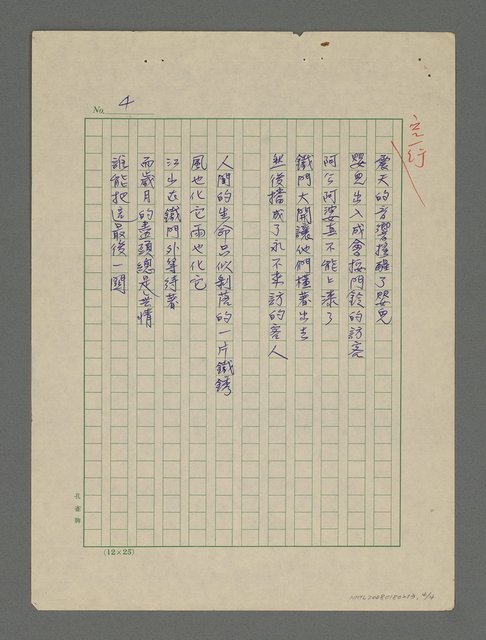 No. 4
空一行
震天的音響撞醒了嬰兒
嬰兒出入成會按門鈴的訪客
阿公阿婆直不能上來了
鐵門大開讓他們橫著出去
然後擋成了永不來訪的客人
人間的生命只似剝落的一片鐵銹
風也化它雨也化它
江山在鐵門外等待著
而歲月的盡頭總是無情
誰能把住最後一關
孔雀牌
(12×25)
NMTL20080180213, 4/4